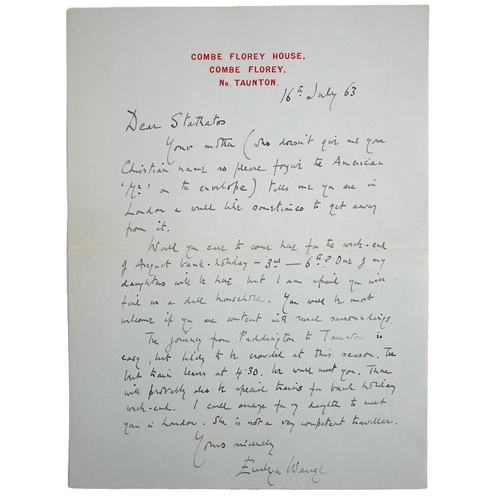 COMBE FLOREY HOUSE,
COMBE FLOREY,
Nr. TAUNTON.
16th July 63
Dear Stathatos
Your mother (who doesn't give me your
Christian name so please forgive the American
'Mr' on the envelope) tells me you are in
London & would like sometimes to get away
from it.
Would you care to come here for the week-end
of August bank-holiday – 3rd – 6th? One of my
daughters will be here but I am afraid you will
find us a dull household. You will be most
welcome if you are content with rural surroundings.
The journey from Paddington to Taunton is
easy, but likely to be crowded at this season. The
best train leaves at 4.30. We would meet you. There
will probably also be special trains for bank holiday
week-end. I could arrange for my daughter to meet
you in London. She is not a very competent traveller.
Yours sincerely
Evelyn Waugh